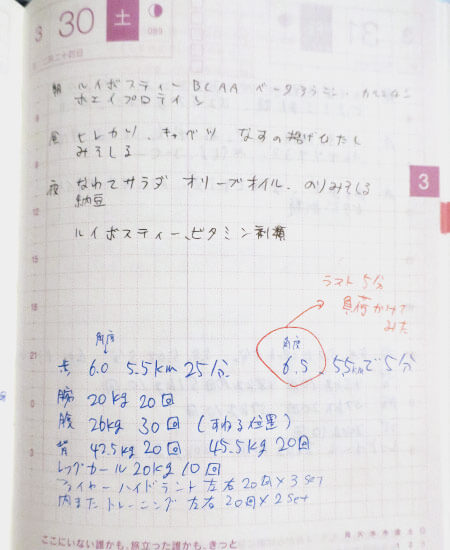 3 30 土
089
二月二十四日
朝 ルイボスティー BCAA ベータアラニン
ホエイプロテイン
昼 ヒレカツ、キャベツ、なすの揚げびたし
みそしる
夜 なわてサラダ オリーブオイル、のりみそしる
納豆
3
ルイボスティー、ビタミン剤類
ラスト5分
負荷かけて
みた
角度 角度
歩 6.0 5.5km 25分 6.5 5.5kmで5分
腕 20kg 20回
腹 26kg 30回 (すわる位置)
背 42.5kg 20回 45.5kg 20回
レッグカール 20kg 10回
ファイヤーハイドラント 左右20回×3set
内またトレーニング 左右20回×2set
ここにいない誰かも、旅立った誰かも、きっと